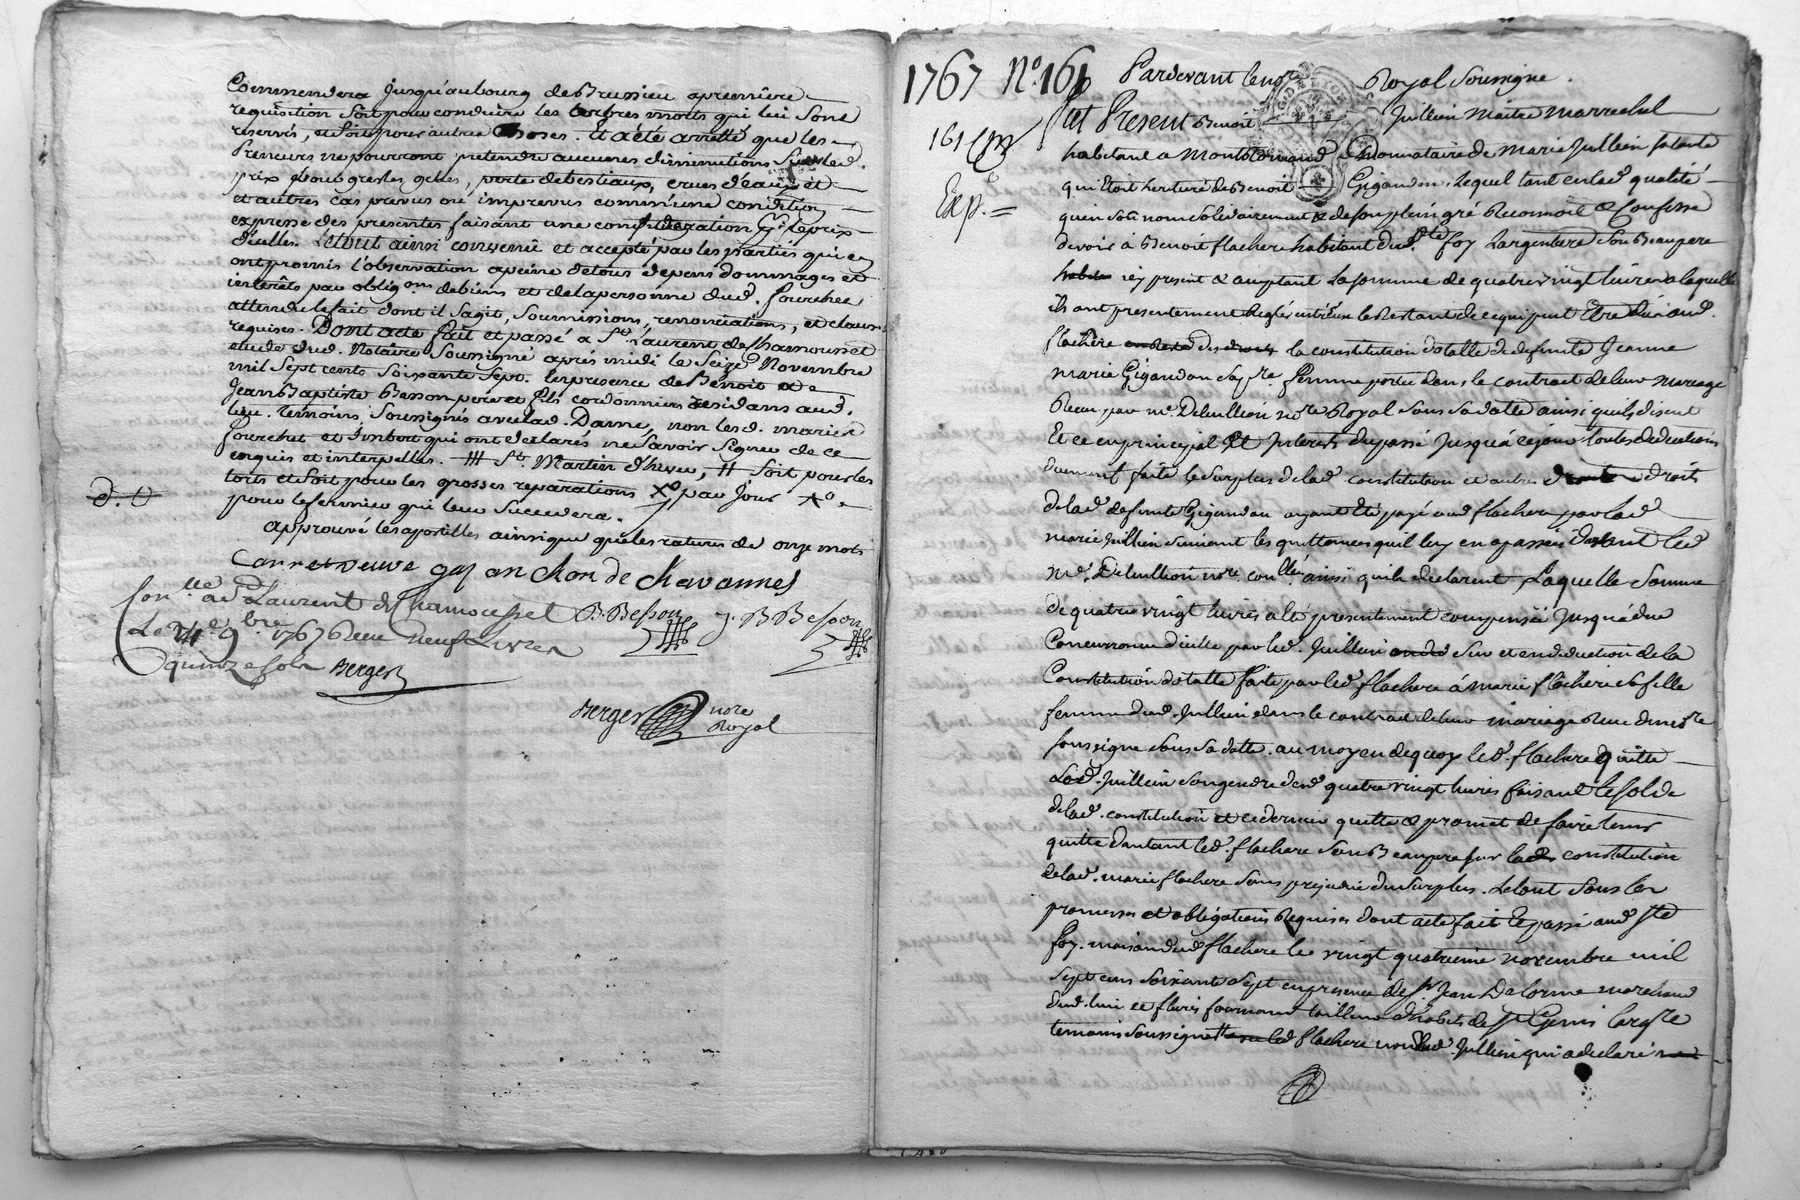 Commendera jusqu'au bourg de Brussieu a premiere
requisition soit pour conduire les arbres morts qui lui sont
reservés, et soit pour autres choses. Et a été arretté que les
Preneurs ne pourront pretendre aucunes diminutions sur led.
prix pour gresles, gelées, perte de bestiaux, crues d'eaux et
et autres cas prevus ou imprevus comme une condition
expresse des presentes faisant une consideration le prix
d'icelles. Le tout ainsi convenu et accepté par les parties qui en
ont promis l'observation a peine de tous depens dommages et
interêts par oblig.ons de biens et de la personne dud. fourchet
attendu le fait dont il s'agit, soumissions, renonciations, et clauses
requises. Dont acte fait et passé a St. Laurent de Chamousset
etude dud. Notaire soussigné aprés midi le seize Novembre
mil sept cents soixante sept. En presence de Benoit et
Jean Baptiste Besson pere et fils cordonniers residans aud.
lieu. temoins soussignés avec lad. Dame, non lesd. mariés
fourchet et Imbert qui ont declarés ne savoir signer de ce
enquis et interpellés. St. Martin d'hiver, # soit pour les
toits et soit pour les grosses reparations X par jour X
pour le fermier qui leur succedera.
approuvé les apostilles ainsi que les ratures de onze mots
veuve de Chavannes
Con.llé a St Laurent de Chamousset B. Besson J. B Besson
Le 9bre 1767 Reçu neuf Livres
quinze sols Berger
Berger nore
Royal
1767 N.o 161
161
Exp.
Pardevant le no.re Royal soussigné.
fut Present Benoit Jullien Maitre marrechal
habitant a Montromand donnataire de Marie Jullien sa tante
qui étoit heritiere de Benoit Gigandon, lequel tant en lad. qualité
qu'en son nom solidairement & de son plein gré Reconnoit & Confesse
devoir à Benoit flachere habitant dud. Ste foy Largentiere son Beaupere
icy present & acceptant la somme de quatre vingt livres a laquelle
ils ont presentement Reglés entr'eux le Restant de ce qui peut être dû aud.
flachere la constitution dotalle de defunte Jeanne
marie Gigandon sa femme portée dans le contract de leur mariage
Reçu par me. Deleullion no.re Royal sous sa datte ainsi qu'ils disent
Et ce en principal Et interets du passé jusqu'à ce jour toutes deductions
dument faite le surplus de lad. constitution et autres droits
de lad. defunte Gigandon ayant été payé aud. flachere par lad.
marie Jullien suivant les quittances qu'il luy en a passées devant led.
Me. Deleullion no.re ainsi qu'ils declarent Laquelle somme
de quatre vingt livres a été presentement compensée jusqu'à due
Concurrence d'icelle par led. Jullien sur et en deduction de la
Constitution dotalle faite par led. flachere à marie flachere sa fille
femme dud. Jullien dans le contract de leur mariage Reçu du no.re
soussigné sous sa datte. au moyen de quoy led. flachere quitte
Led. Jullien son gendre desd. quatre vingt livres faisant le solde
de lad. constitution et ce dernier quitte & promet de faire tenir
quitte d'autant led. flachere son Beaupere sur lad. constitution
de lad. marie flachere sans prejudice du surplus. Le tout sous les
promesses et obligations Requises dont acte fait Et passé aud. Ste
foy. maison dud. flachere le vingt quatrieme novembre mil
sept cens soixante sept en presence de Sr. Jean Delorme marchand
dud. lieu et fleury tailleur d'habits de St Genis Largre
temoins soussignés led. flachere non led. Jullien qui a declaré